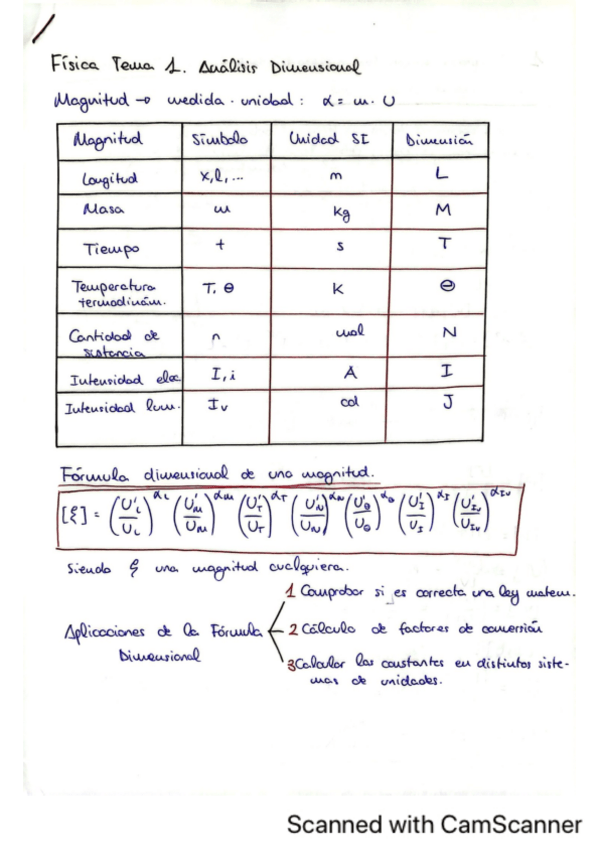 Física Tema 1. Análisis Dimensional
Magnitud → medida · unidad : α = m · U
Magnitud Símbolo Unidad SI Dimensión
Longitud x, l, ... m L
Masa m kg M
Tiempo t s T
Temperatura termodinám. T, θ K Θ
Cantidad de sustancia n mol N
Intensidad elec I, i A I
Intensidad lum. Iv cd J
Fórmula dimensional de una magnitud.
[ξ] = (U'L/UL)^αL (U'M/UM)^αM (U'T/UT)^αT (U'N/UN)^αN (U'θ/Uθ)^αθ (U'I/UI)^αI (U'Iv/UIv)^αIv
Siendo ξ una magnitud cualquiera.
1 Comprobar si es correcta una ley matem.
Aplicaciones de la Fórmula Dimensional
2 Cálculo de factores de conversión
3 Calcular las constantes en distintos siste-
mas de unidades.
Scanned with CamScanner